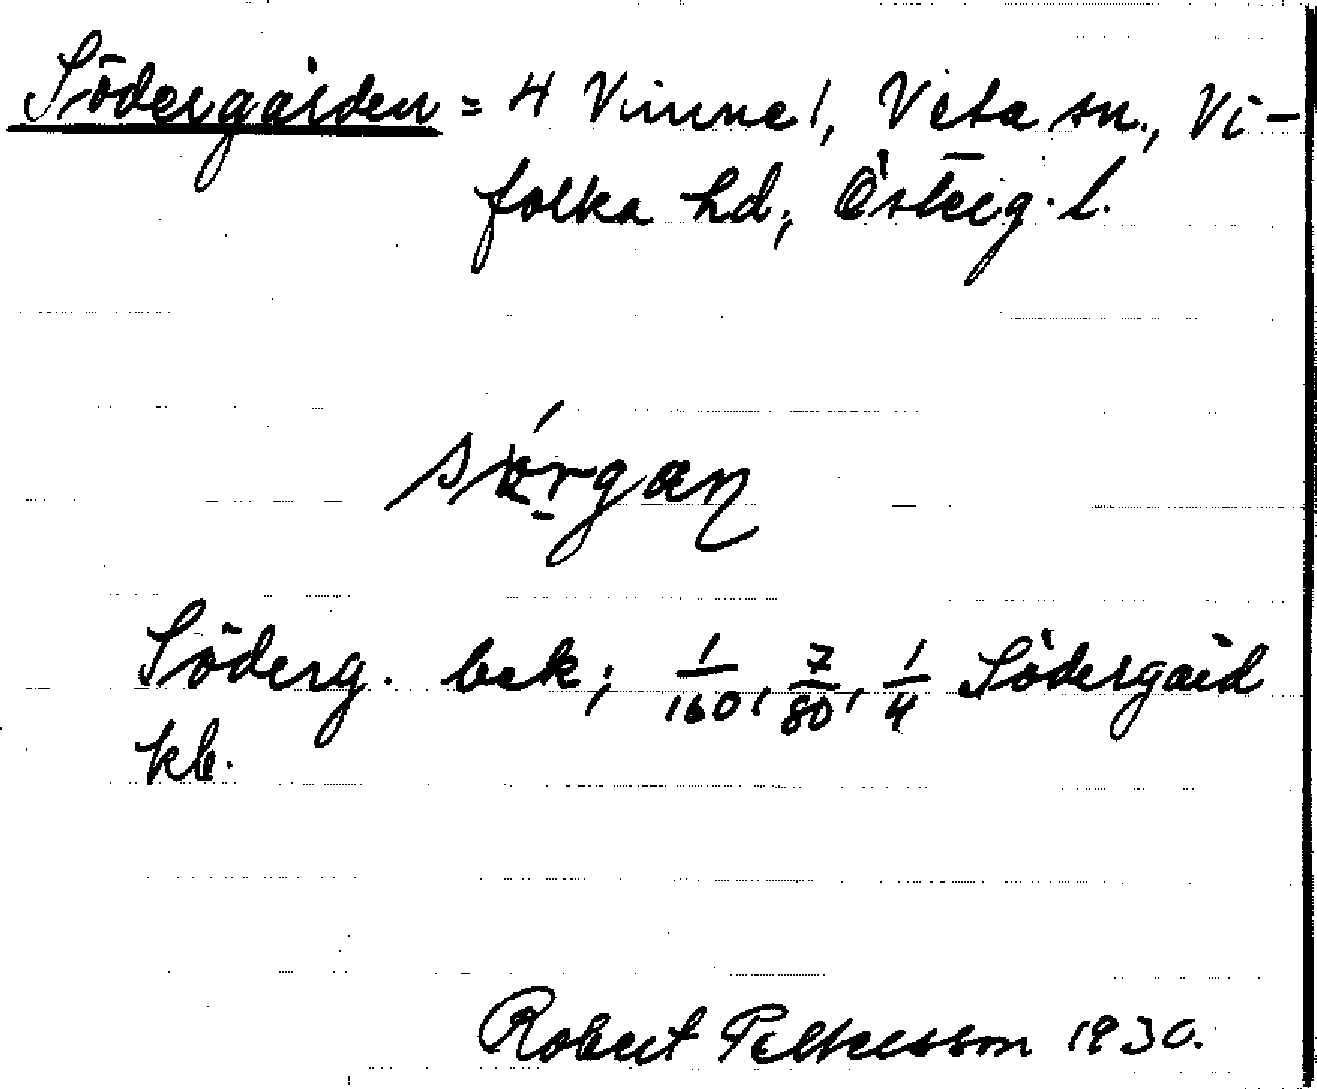 Södergården = 4 Vinne 1, Veta sn., Vi-
folka hd, Österg. l.
Söderg. bek; 1/160, 7/80, 1/4 Södergård
kb.
Robert Pettersson 1930.